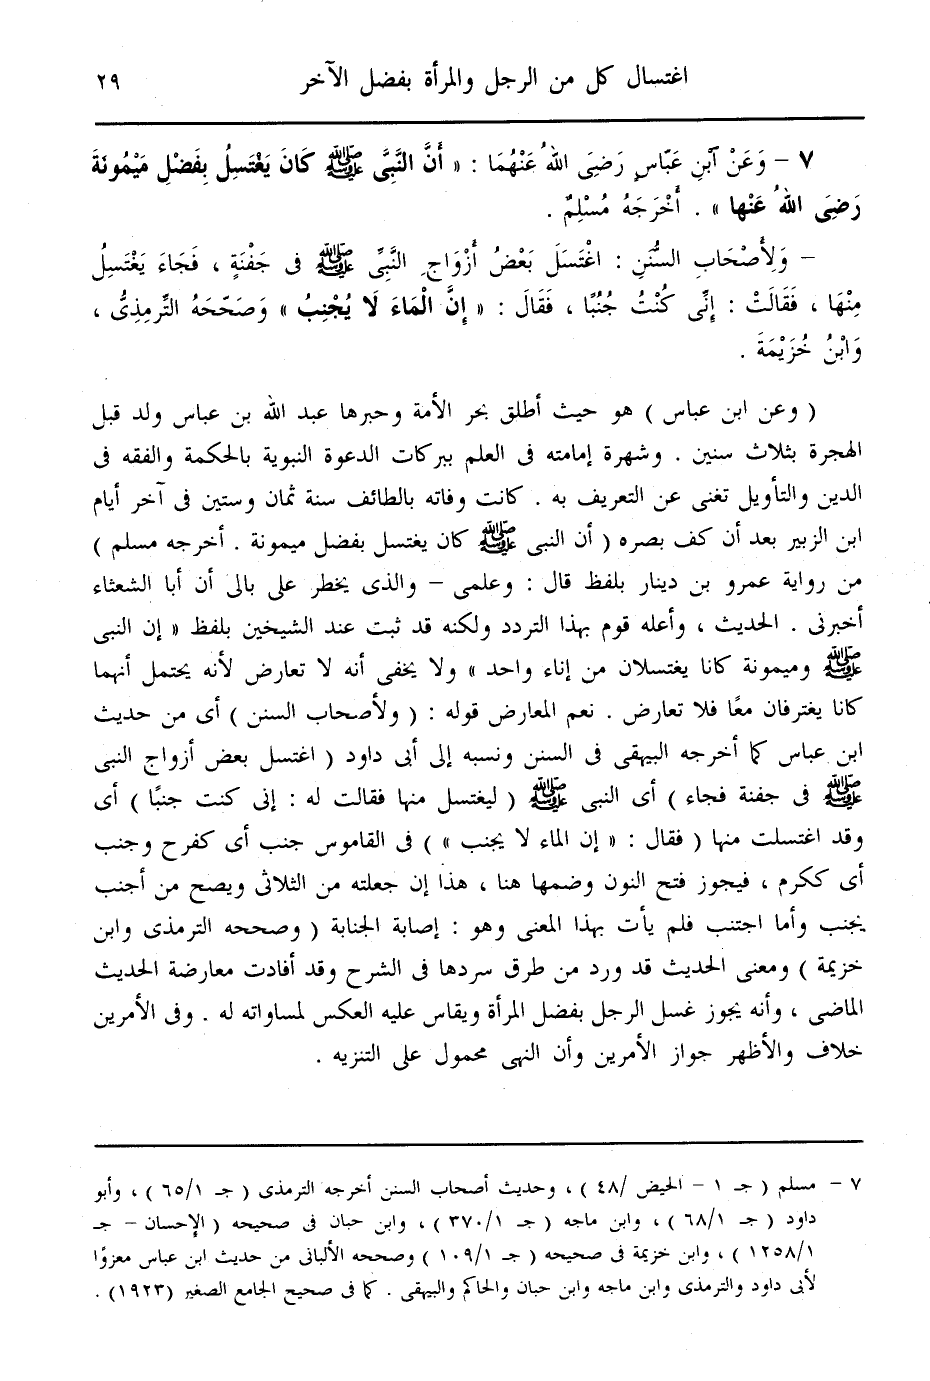 اغتسال كل من الرجل والمرأة بفضل الآخر ٢٩
٧ – وَعَنْ آبْنِ عَبَّاسٍ رَضِىَ اللهُ عَنْهُمَا : « أَنَّ النَّبِىَّ ﷺ كَانَ يَغْتَسِلُ بِفَضْلِ مَيْمُونَةَ
رَضِىَ اللهُ عَنْها » . أَخْرَجَهُ مُسْلِمٌ .
– وَلِأَصْحَابِ السُّنَنِ : اغْتَسَلَ بَعْضُ أَزْوَاجِ النَّبِىِّ ﷺ فى جَفْنَةٍ ، فَجَاءَ يَغْتَسِلُ
مِنْهَا ، فَقَالَتْ : إِنِّى كُنْتُ جُنُبًا ، فَقَالَ : « إِنَّ الْمَاءَ لَا يُجْنِبُ » وَصَحّحَهُ التِّرمِذِىُّ ،
وَابْنُ خُزَيْمَةَ .
( وعن ابن عباس ) هو حيث أطلق بحر الأمة وحبرها عبد الله بن عباس ولد قبل
الهجرة بثلاث سنين . وشهرة إمامته فى العلم ببركات الدعوة النبوية بالحكمة والفقه فى
الدين والتأويل تغنى عن التعريف به . كانت وفاته بالطائف سنة ثمان وستين فى آخر أيام
ابن الزبير بعد أن كف بصره ( أن النبى ﷺ كان يغتسل بفضل ميمونة . أخرجه مسلم )
من رواية عمرو بن دينار بلفظ قال : وعلمى – والذى يخطر على بالى أن أبا الشعثاء
أخبرنى . الحديث ، وأعله قوم بهذا التردد ولكنه قد ثبت عند الشيخين بلفظ « إن النبى
ﷺ وميمونة كانا يغتسلان من إناء واحد » ولا يخفى أنه لا تعارض لأنه يحتمل أنهما
كانا يغترفان معًا فلا تعارض . نعم المعارض قوله : ( ولأصحاب السنن ) أى من حديث
ابن عباس كما أخرجه البيهقى فى السنن ونسبه إلى أبى داود ( اغتسل بعض أزواج النبى
ﷺ فى جفنة فجاء ) أى النبى ﷺ ( ليغتسل منها فقالت له : إنى كنت جنبًا ) أى
وقد اغتسلت منها ( فقال : « إن الماء لا يجنب » ) فى القاموس جنب أى كفرح وجنب
أى ككرم ، فيجوز فتح النون وضمها هنا ، هذا إن جعلته من الثلاثى ويصح من أجنب
يجنب وأما اجتنب فلم يأت بهذا المعنى وهو : إصابة الجنابة ( وصححه الترمذى وابن
خزيمة ) ومعنى الحديث قد ورد من طرق سردها فى الشرح وقد أفادت معارضة الحديث
الماضى ، وأنه يجوز غسل الرجل بفضل المرأة ويقاس عليه العكس لمساواته له . وفى الأمرين
خلاف والأظهر جواز الأمرين وأن النهى محمول على التنزيه .
٧ – مسلم ( جـ ١ – الحيض /٤٨ ) ، وحديث أصحاب السنن أخرجه الترمذى ( جـ ٦٥/١ ) ، وأبو
داود ( جـ ٦٨/١ ) ، وابن ماجه ( جـ ٣٧٠/١ ) ، وابن حبان فى صحيحه ( الإحسان – جـ
١٢٥٨/١ ) ، وابن خزيمة فى صحيحه ( جـ ١٠٩/١ ) وصححه الألبانى من حديث ابن عباس معزوًا
لأبى داود والترمذى وابن ماجه وابن حبان والحاكم والبيهقى . كما فى صحيح الجامع الصغير (١٩٢٣) .